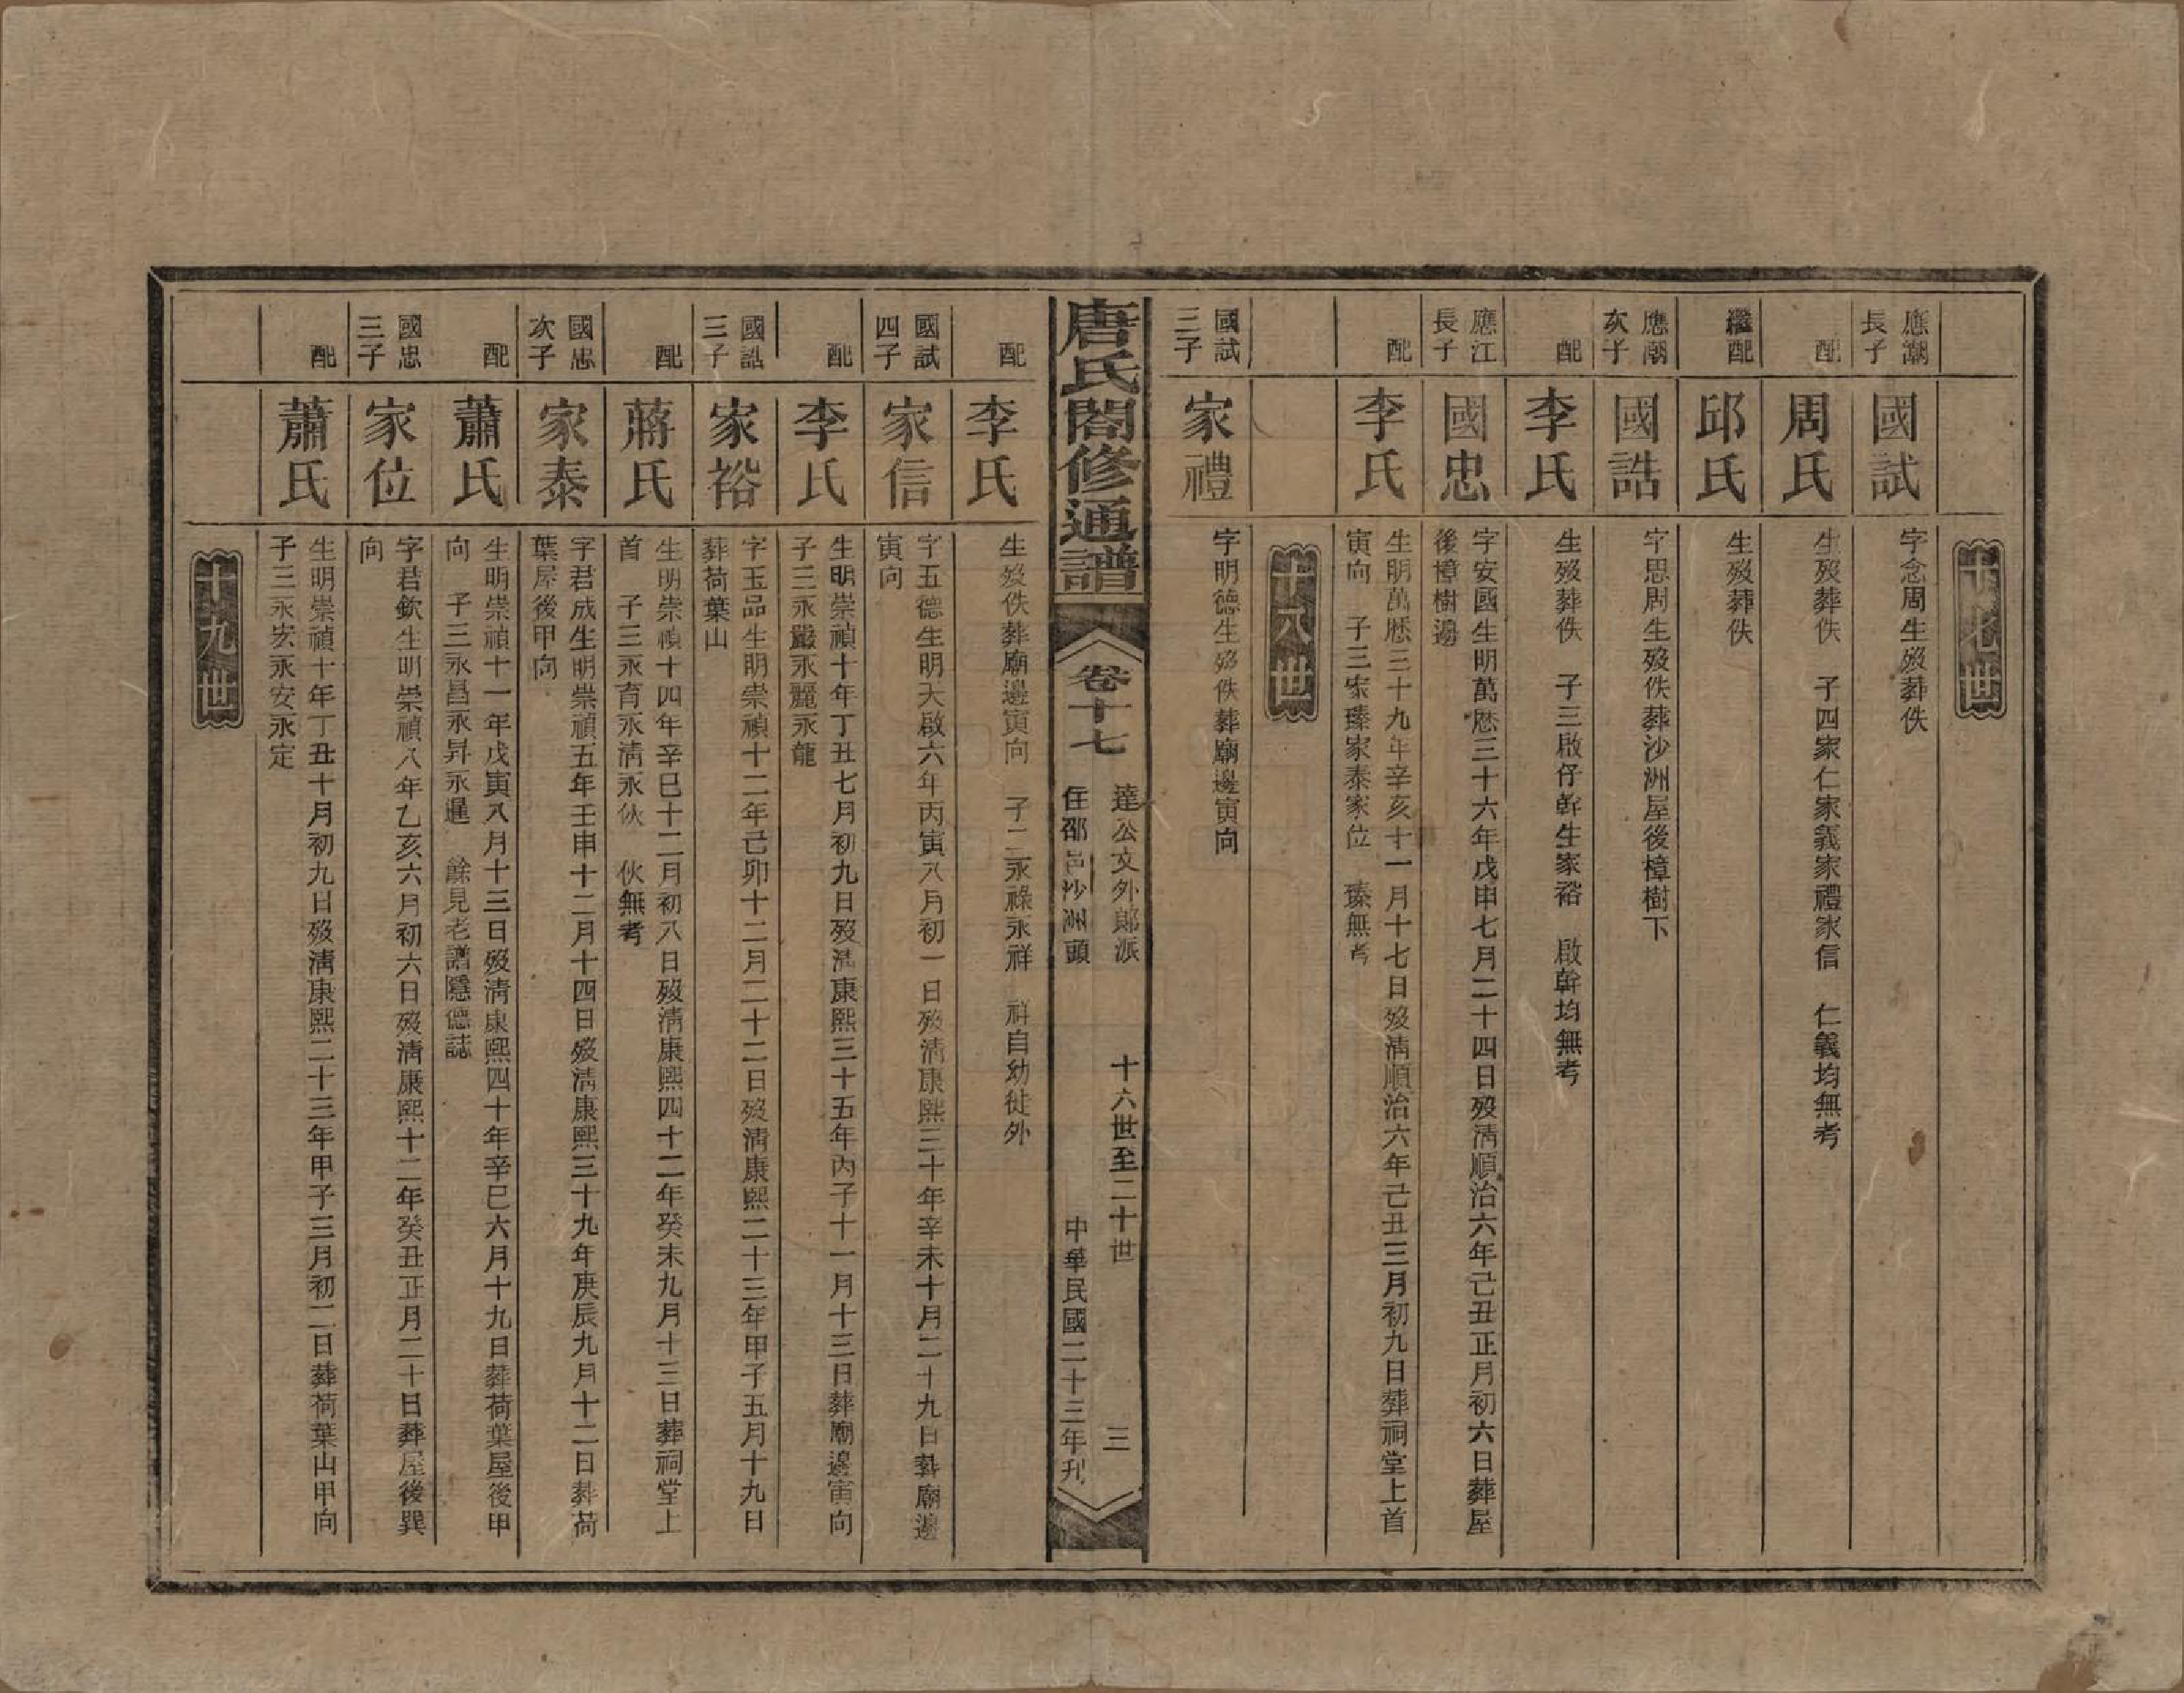 十七世
應潮長子 國試 字念周生歿葬佚
配 周氏 生歿葬佚 子四家仁家義家禮家信 仁義均無考
繼配 邱氏 生歿葬佚
應潮次子 國誥 字思周生歿佚葬沙洲屋後樟樹下
配 李氏 生歿葬佚 子三啟仔幹生家裕 啟幹均無考
應江長子 國忠 字安國生明萬歷三十六年戊申七月二十四日歿清順治六年己丑正月初六日葬屋
後樟樹邊
配 李氏 生明萬歷三十九年辛亥十一月十七日歿清順治六年己丑三月初九日葬祠堂上首
寅向 子三家瑧家泰家位 瑧無考
十八世
國試三子 家禮 字明德生歿佚葬廟邊寅向
唐氏閤修通譜 卷十七 達公文外郎派 住邵邑沙洲頭 十六世至二十世 三 中華民國二十三年刊
配 李氏 生歿佚葬廟邊寅向 子二永祿永祥 祥自幼徙外
國試四子 家信 字五德生明天啟六年丙寅八月初一日歿清康熙三十年辛未十月二十九日葬廟邊
寅向
配 李氏 生明崇禎十年丁丑七月初九日歿清康熙三十五年丙子十一月十三日葬廟邊寅向
子三永嚴永麗永龍
國誥三子 家裕 字玉品生明崇禎十二年己卯十二月二十二日歿清康熙二十三年甲子五月十九日
葬荷葉山
配 蔣氏 生明崇禎十四年辛巳十二月初八日歿清康熙四十二年癸未九月十三日葬祠堂上
首 子三永育永清永伙 伙無考
國忠次子 家泰 字君成生明崇禎五年壬申十二月十四日歿清康熙三十九年庚辰九月十二日葬荷
葉屋後甲向
配 蕭氏 生明崇禎十一年戊寅八月十三日歿清康熙四十年辛巳六月十九日葬荷葉屋後甲
向 子三永昌永昇永暹 餘見老譜隱德誌
國忠三子 家位 字君欽生明崇禎八年乙亥六月初六日歿清康熙十二年癸丑正月二十日葬屋後巽
向
配 蕭氏 生明崇禎十年丁丑十月初九日歿清康熙二十三年甲子三月初二日葬荷葉山甲向
子三永宏永安永定
十九世